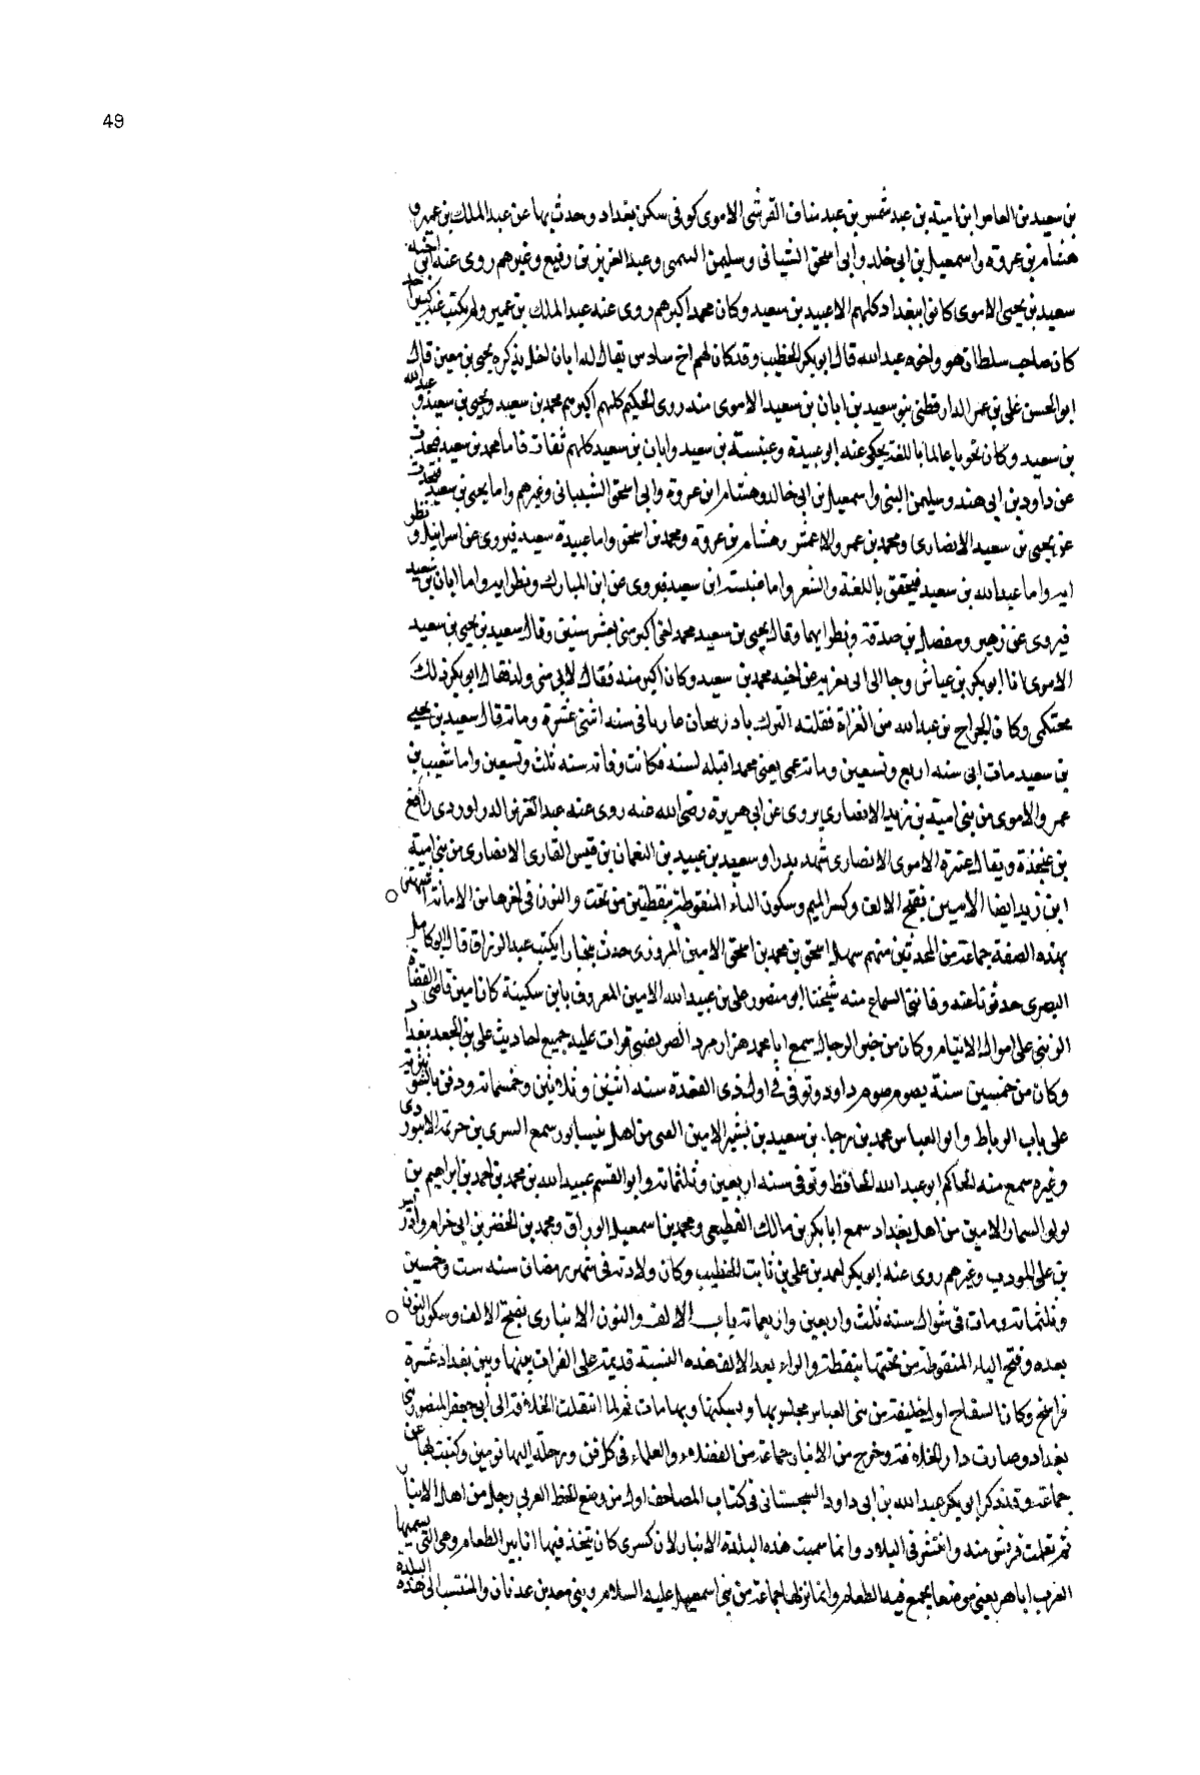 49
بن سعيد بن العاص ابن امية بن عبد شمس بن عبد مناف القرشى الاموى كوفى سكن بغداد وحدث بها عن عبد الملك بن عمير و
هشام بن عروة واسمعيل بن ابى خلد وابى اسحق الشيبانى وسليمن التيمى وعبد العزيز بن رفيع وغيرهم روى عنه ابن اخيه
سعيد بن يحيى الاموى كانوا ببغداد كلهم الا عبيد بن سعيد وكان محمد اكبرهم روى عنه عبد الملك بن عمير ولم يكتب عنه كبير احد
كان صاحب سلطان هو واخوه عبد الله قال ابو بكر الخطيب وقد كان لهم اخ سادس يقال له ابان اخل بذكره يحيى بن معين قال
ابو الحسن على بن عمر الدارقطنى بنو سعيد بن ابان بن سعيد الاموى منه روى الحكيم كلهم اكبرهم محمد بن سعيد ويحيى بن سعيد و عبد الله
بن سعيد وكان نحويا عالما باللغة يحكى عنه ابو عبيدة وعنبسة بن سعيد وابان بن سعيد كلهم ثقات فاما محمد بن سعيد فحدث
عن داود بن ابى هند وسليمن التيمى واسمعيل بن ابى خالد وهشام ابن عروة وابى اسحق الشيبانى وغيرهم واما يحيى بن سعيد فحدث
عن يحيى بن سعيد الانصارى ومحمد بن عمرو والاعمش وهشام بن عروة ومحمد بن اسحق واما عبيدة سعيد فيروى عن اسرائيل و نظر
ايه واما عبد الله بن سعيد فيحقق باللغة والشعر واما عنبسة ابن سعيد فيروى عن ابن المبارك ونظرايه واما ابان بن سعيد
فيروى عن زهير ومفضل بن صدقة ونظرايهما وقال يحيى بن سعيد محمد اخى اكبر منى بعشر سنين وقال سعيد بن يحيى بن سعيد
الاموى انا ابو بكر بن عياش وجا الى ابى يعزيه عن اخيه محمد بن سعيد وكان اكبر منه فقال لابى منى ولد فقال ابو بكر ذلك
محتكمى وكان الجراح بن عبد الله من الغزاة فقتلته الترك باذربيجان غازيا فى سنه اثنتى عشرة وماية قال سعيد بن يحيى
بن سعيد مات ابى سنه اربع وتسعين ومات عمى يعنى محمدا قبله لسنه فكانت وفاته سنه ثلث وتسعين واما شعيب بن
عمرو الاموى من بنى امية بن زيد الانصارى يروى عن ابى هريرة رضى الله عنه روى عنه عبد العزيز الدراوردى رافع
بن عنجدة ويقال عنترة الاموى الانصارى شهد بدرا وسعيد بن عبيد بن النعمان بن قيس القارى الانصارى من بنى امية
ابن زيد ايضا الامين بفتح الالف وكسر الميم وسكون الياء المنقوطة بنقطتين من تحت والنون فى اخرها من الامانة اشتهر
بهذه الصفة جماعة من المحدثين منهم سهل اسحق بن محمد بن اسحق الامين المروزى حدث ببخارا يكتب عبد الرزاق قال ابو كامل
البصرى حدثونا عنه وفاتنى السماع منه شيخنا ابو منصور على بن عبيد الله الامين المعروف بابن سكينة كان امين قاضى القضاة
الزينبى على اموال الايتام وكان من خير الرجال سمع ابا محمد هزارمرد الصريفينى قرات عليه جميع احاديث على بن الجعد بغداد
وكان من خمسين سنة يصوم صوم داود وتوفى فى اول ذى القعدة سنه اثنين وثلاثين وخمسماية ودفن بالشونيزية
على باب الرباط وابو العباس محمد بن رجاء بن سعيد بن بشير الامين العمى من اهل نيسابور سمع السرى بن خزيمة الابيوردى
وغيره سمع منه الحاكم ابو عبد الله الحافظ وتوفى سنه اربعين وثلثماية وابو القسم عبيد الله بن محمد بن احمد بن ابراهيم بن
لولو السمار الامين من اهل بغداد سمع ابا بكر بن مالك القطيعى ومحمد بن اسمعيل الوراق ومحمد بن الخضر بن ابى خزام
بن على المودب وغيرهم روى عنه ابو بكر احمد بن على بن ثابت الخطيب وكان ولادته فى شهر رمضان سنه ست وخمسين
وثلثماية ومات فى شوال سنه ثلث واربعين واربعماية باب الالف والنون الانبارى بفتح الالف وسكون النون
بعده وفتح الباء المنقوطة من تحتها بنقطة والراء بعد الالف هذه النسبة قديمة على الفرات بينها وبين بغداد عشرة
فراسخ وكان السفاح اول خليفة من بنى العباس مجلس بها ويسكنها وبها مات ثم لما انتقلت الخلافة الى ابى جعفر المنصور بنى
بغداد وصارت دار الخلافة وخرج من الانبار جماعة من الفضلاء والعلماء فى كل فن ورحلة اليها نوبتين وكتبت بها عن
جماعة وقد ذكر ابو بكر عبد الله بن ابى داود السجستانى فى كتاب المصاحف اول من وضع الخط العربى رجل من اهل الانبار
ثم تعلمت قريش منه وانتشر فى البلاد وانما سميت هذه البلدة الانبار لان كسرى كان يتخذ فيها انابير الطعام وهى التى يسميها
العرب اباهر يعنى موضعا يجمع فيه الطعام وانما نزلها جماعة من بنى اسمعيل عليه السلام وبنى معد بن عدنان والمنتسب الى هذه البلدة